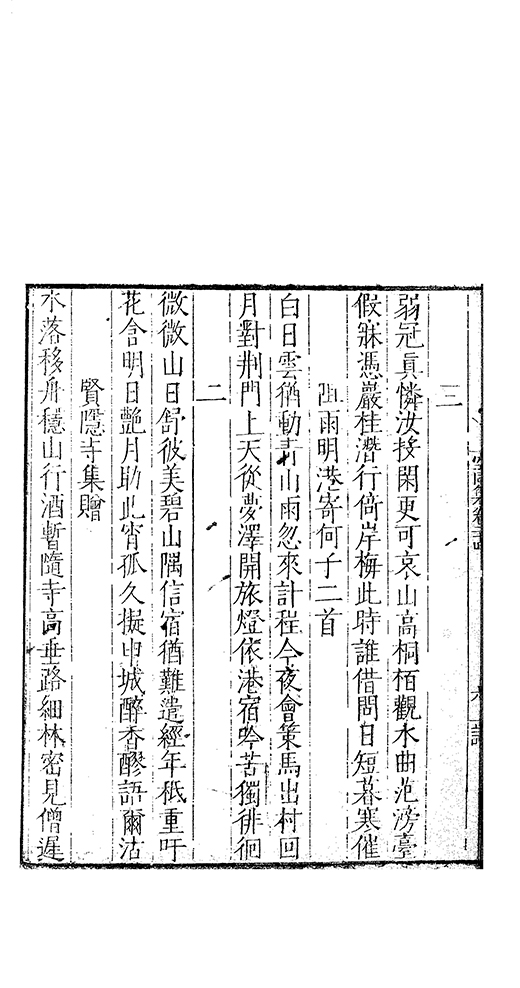 三
弱冠真憐汝接閑更可哀山高桐栢觀水曲范滂臺
假寐憑巖桂潛行倚岸梅此時誰借問日短暮寒催
阻雨明港寄何子二首
白日雲猶動青山雨忽來計程今夜會策馬出村回
月對荆門上天從夢澤開旅燈依港宿吟苦獨徘徊
二
微微山日舒彼美碧山隅信宿猶難遣經年秪重吁
花含明日艷月助此宵孤久擬申城醉香醪語爾沽
賢隱寺集贈
水落移舟穩山行酒暫隨寺高垂路細林密見僧遲